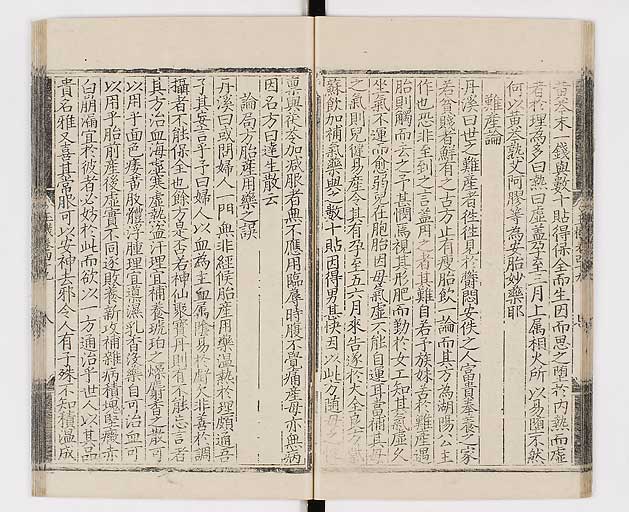 黃芩末一錢與數十貼得保全而生因而思之墮於內熱而虛
者於理為多曰熱曰虛蓋孕至三月上屬相火所以易墮不然
何以黃芩熟艾阿膠等為安胎妙藥耶
難產論
丹溪曰世之難產者徃徃見於欝悶安佚之人富貴奉養之家
若貧賤者鮮有之古方止有瘦胎飲一論而其方為湖陽公主
作也恐非至到之言盖用之者其難自若予族妹苦於難產遇
胎則觸而去之予甚憫焉視其形肥而勤於女工知其氣虛久
坐氣不運而愈弱兒在胞胎因母氣虛不能自運耳當補其母
之氣則兒健易產令其有孕至五六月來告遂於大全良方紫
蘇飲加補氣藥與之數十貼因得男甚快因以此方隨母之
稟與
加減服者無不應用臨蓐時腹不覺痛產母亦無病
因名方曰達生散云
論局方胎產用藥之誤
丹溪曰或問婦人一門無非經候胎產用藥溫熱於理頗通吾
子其
言乎予曰婦人以血為主血屬陰易於虧欠非善於調
攝者不能保全也餘方是否若神仙聚寶丹則有不能忘言者
其方治血海虛寒虛熱盜汗理宜補養琥珀之燥麝香之散可
以用乎面色痿黃肢體浮腫理宜導濕乳香沒藥自可治血可
以用乎胎前產後虛實不同逐敗養新攻補難
病積塊堅癥赤
白崩漏宜於彼者必妨於此而欲以一方通治乎世人以其品
貴名雅又喜其常服可以安神去邪令人有子殊不知積溫成